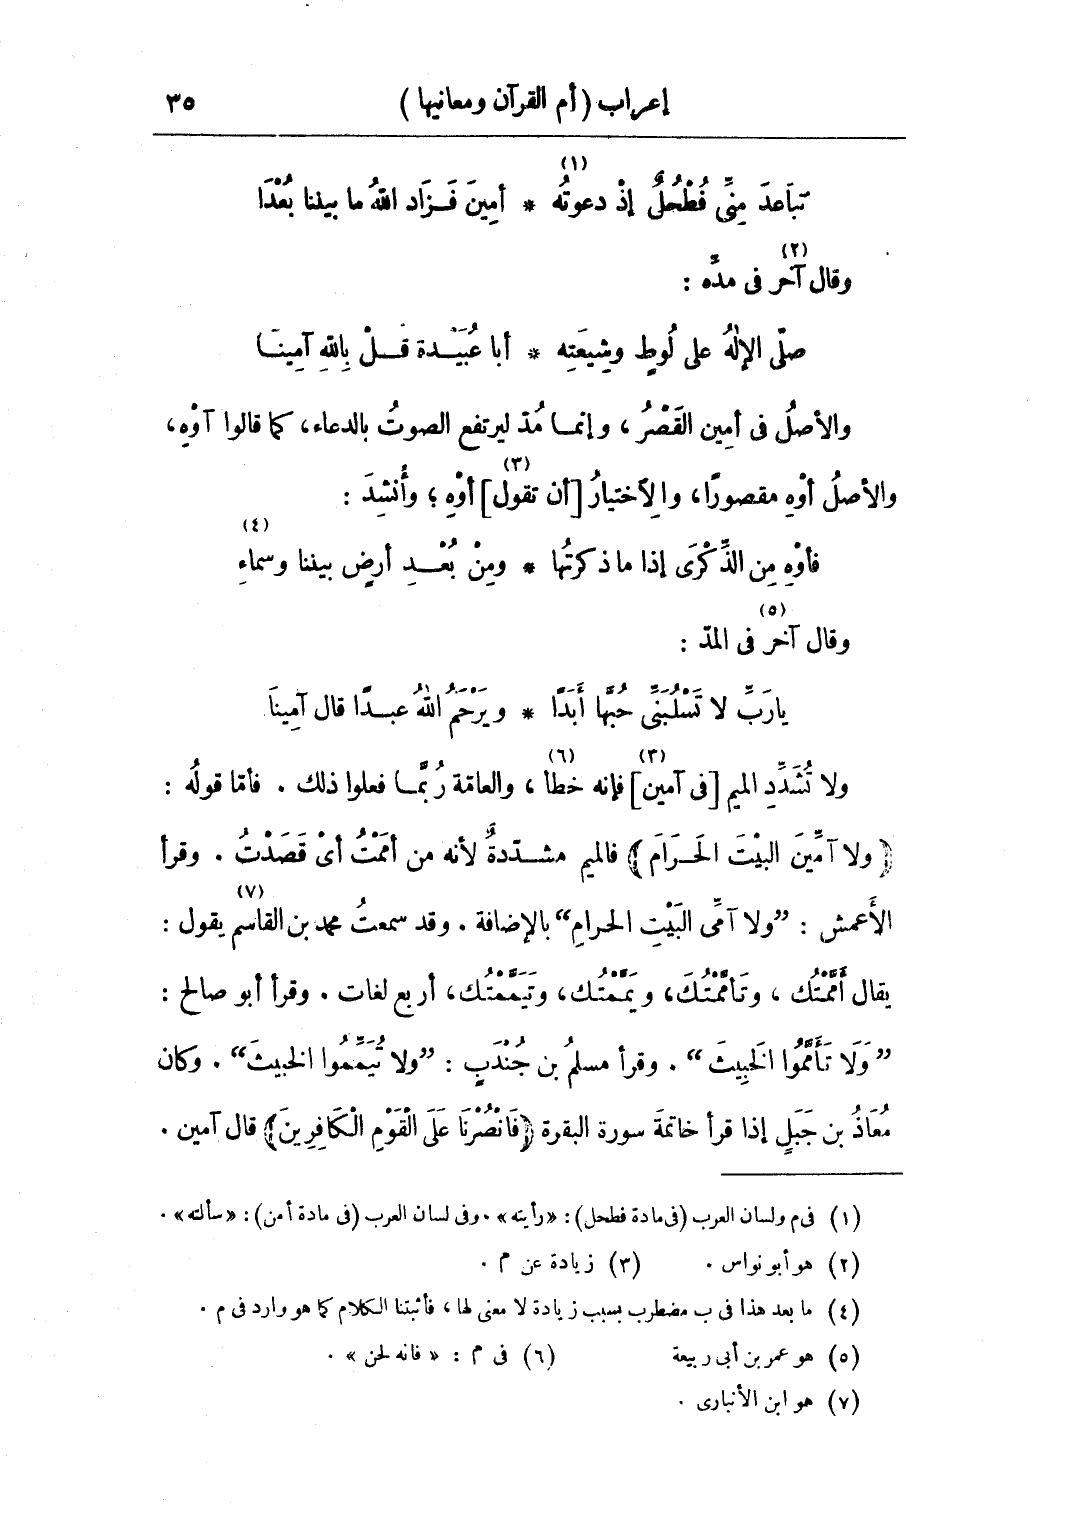 إعراب ( أم القرآن ومعانيها ) ٣٥
تباعدَ مِنِّي فُطْحُلٌ إذْ دعوتُه (١) * أمِينَ فَزَاد اللهُ ما بيننا بُعْدَا
وقال آخر (٢) فى مدّه :
صلّى الإلٰهُ على لُوطٍ وشِيعَتِه * أبا عُبَيْدة قلْ بِاللهِ آمِينَا
والأصلُ فى أمِين القَصْرُ ، وإنما مُدّ ليرتفع الصوتُ بالدعاء، كما قالوا آوْهِ،
والأصلُ أوْهِ مقصورًا، والاِختيارُ [أن تقول] (٣) أوْهِ ؛ وأُنشِدَ :
فأوْهِ مِن الذِّكْرَى إذا ما ذكرتُها * ومِنْ بُعْدِ أرضٍ بيننا وسماءِ (٤)
وقال آخر (٥) فى المدّ :
يارَبِّ لا تَسْلُبَنِّى حُبَّها أَبَدًا * ويَرْحَمُ اللهُ عبدًا قال آمِينَا
ولا تُشَدِّدِ الميم [فى آمين] (٣) فإنه خطأ (٦) ، والعامّة رُبَّما فعلوا ذلك . فأمّا قولُه :
﴿ ولا آمِّينَ البيْتَ الحَرَامَ ﴾ فالميم مشدّدةٌ لأنه من أَمَمْتُ أىْ قَصَدْتُ . وقرأ
الأَعمش : ”ولا آمِّى البَيْتِ الحرامِ“ بالإضافة . وقد سمعتُ محمد بن القاسم (٧) يقول :
يقال أَمَّمْتُك ، وتَأَمَّمْتُكَ، ويَمَّمْتُك، وتَيَمَّمْتُك، أربع لغات . وقرأ أبو صالح :
”وَلَا تَأَمَّمُوا الخَبِيثَ “ . وقرأ مسلمُ بن جُنْدَبٍ : ”ولا تُيَمِّمُوا الخبيثَ“ . وكان
مُعَاذُ بن جَبَلٍ إذا قرأ خاتمةَ سورة البقرة ﴿فَانْصُرْنَا عَلَى الْقَوْمِ الْكَافِرِينَ﴾ قال آمين .
(١) فى م ولسان العرب (فى مادة فطحل) : «رأيته» . وفى لسان العرب (فى مادة أمن) : «سألته» .
(٢) هو أبو نواس . (٣) زيادة عن م .
(٤) ما بعد هذا فى ب مضطرب بسبب زيادة لا معنى لها ، فأثبتنا الكلام كما هو وارد فى م .
(٥) هو عمر بن أبى ربيعة (٦) فى م : « فانه لحن » .
(٧) هو ابن الأنبارى .